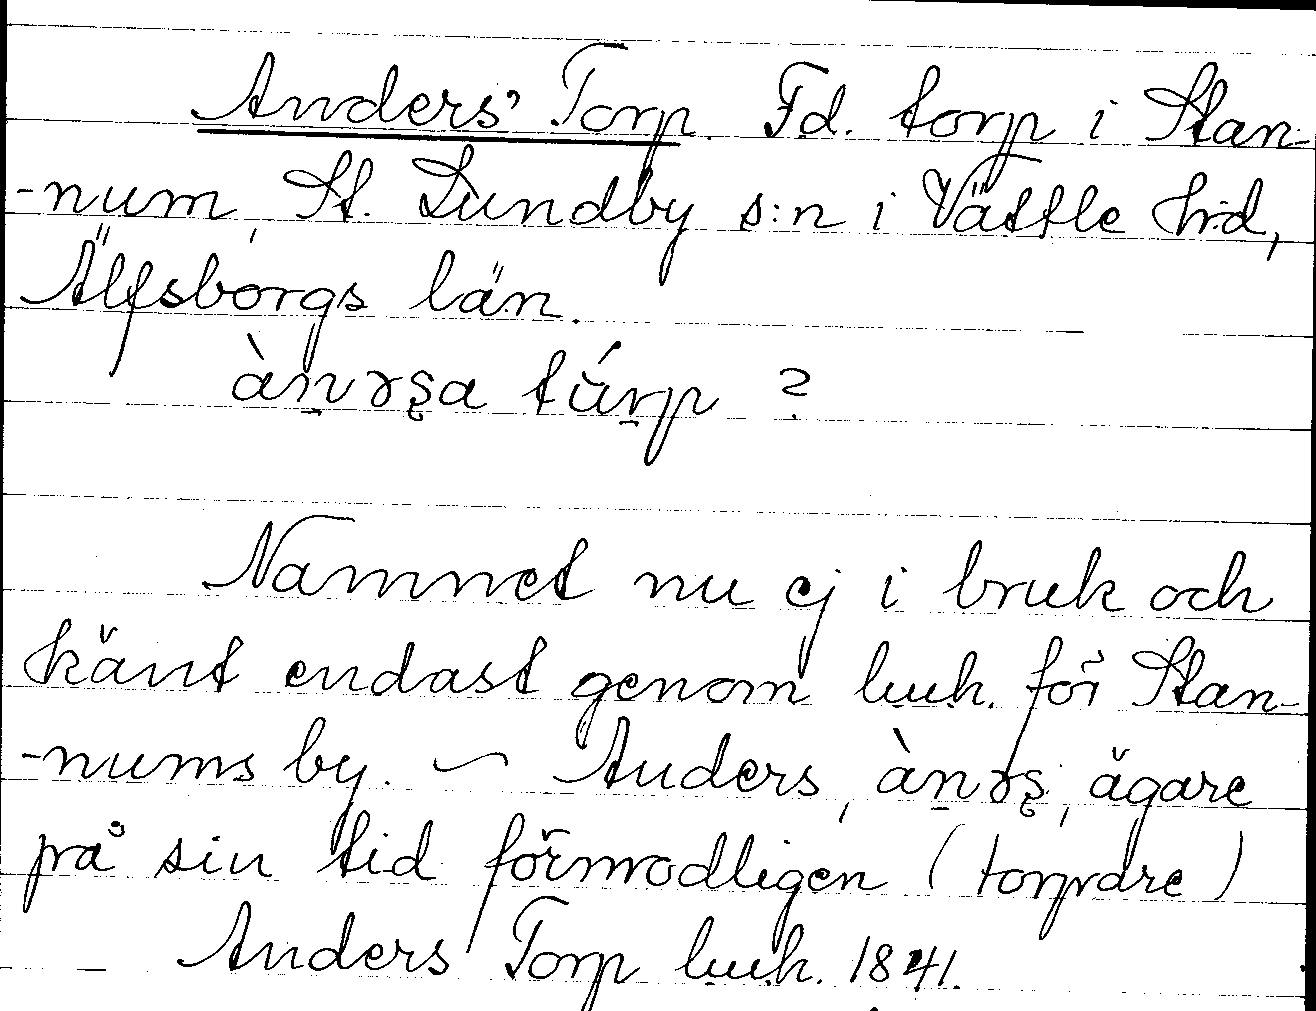 Anders' Torp. Fd. torp i Stan-
-num, St. Lundby s:n i Vättle hd,
Älfsborgs län.
àn̠ɤʂa tú̆r̠p ?
Namnet nu ej i bruk och
känt endast genom luuh. för Stan-
-nums by. ~ Anders, àn̠ɤʂ, ägare
på sin tid förmodligen (torpare)
Anders Torp luuh. 1841.